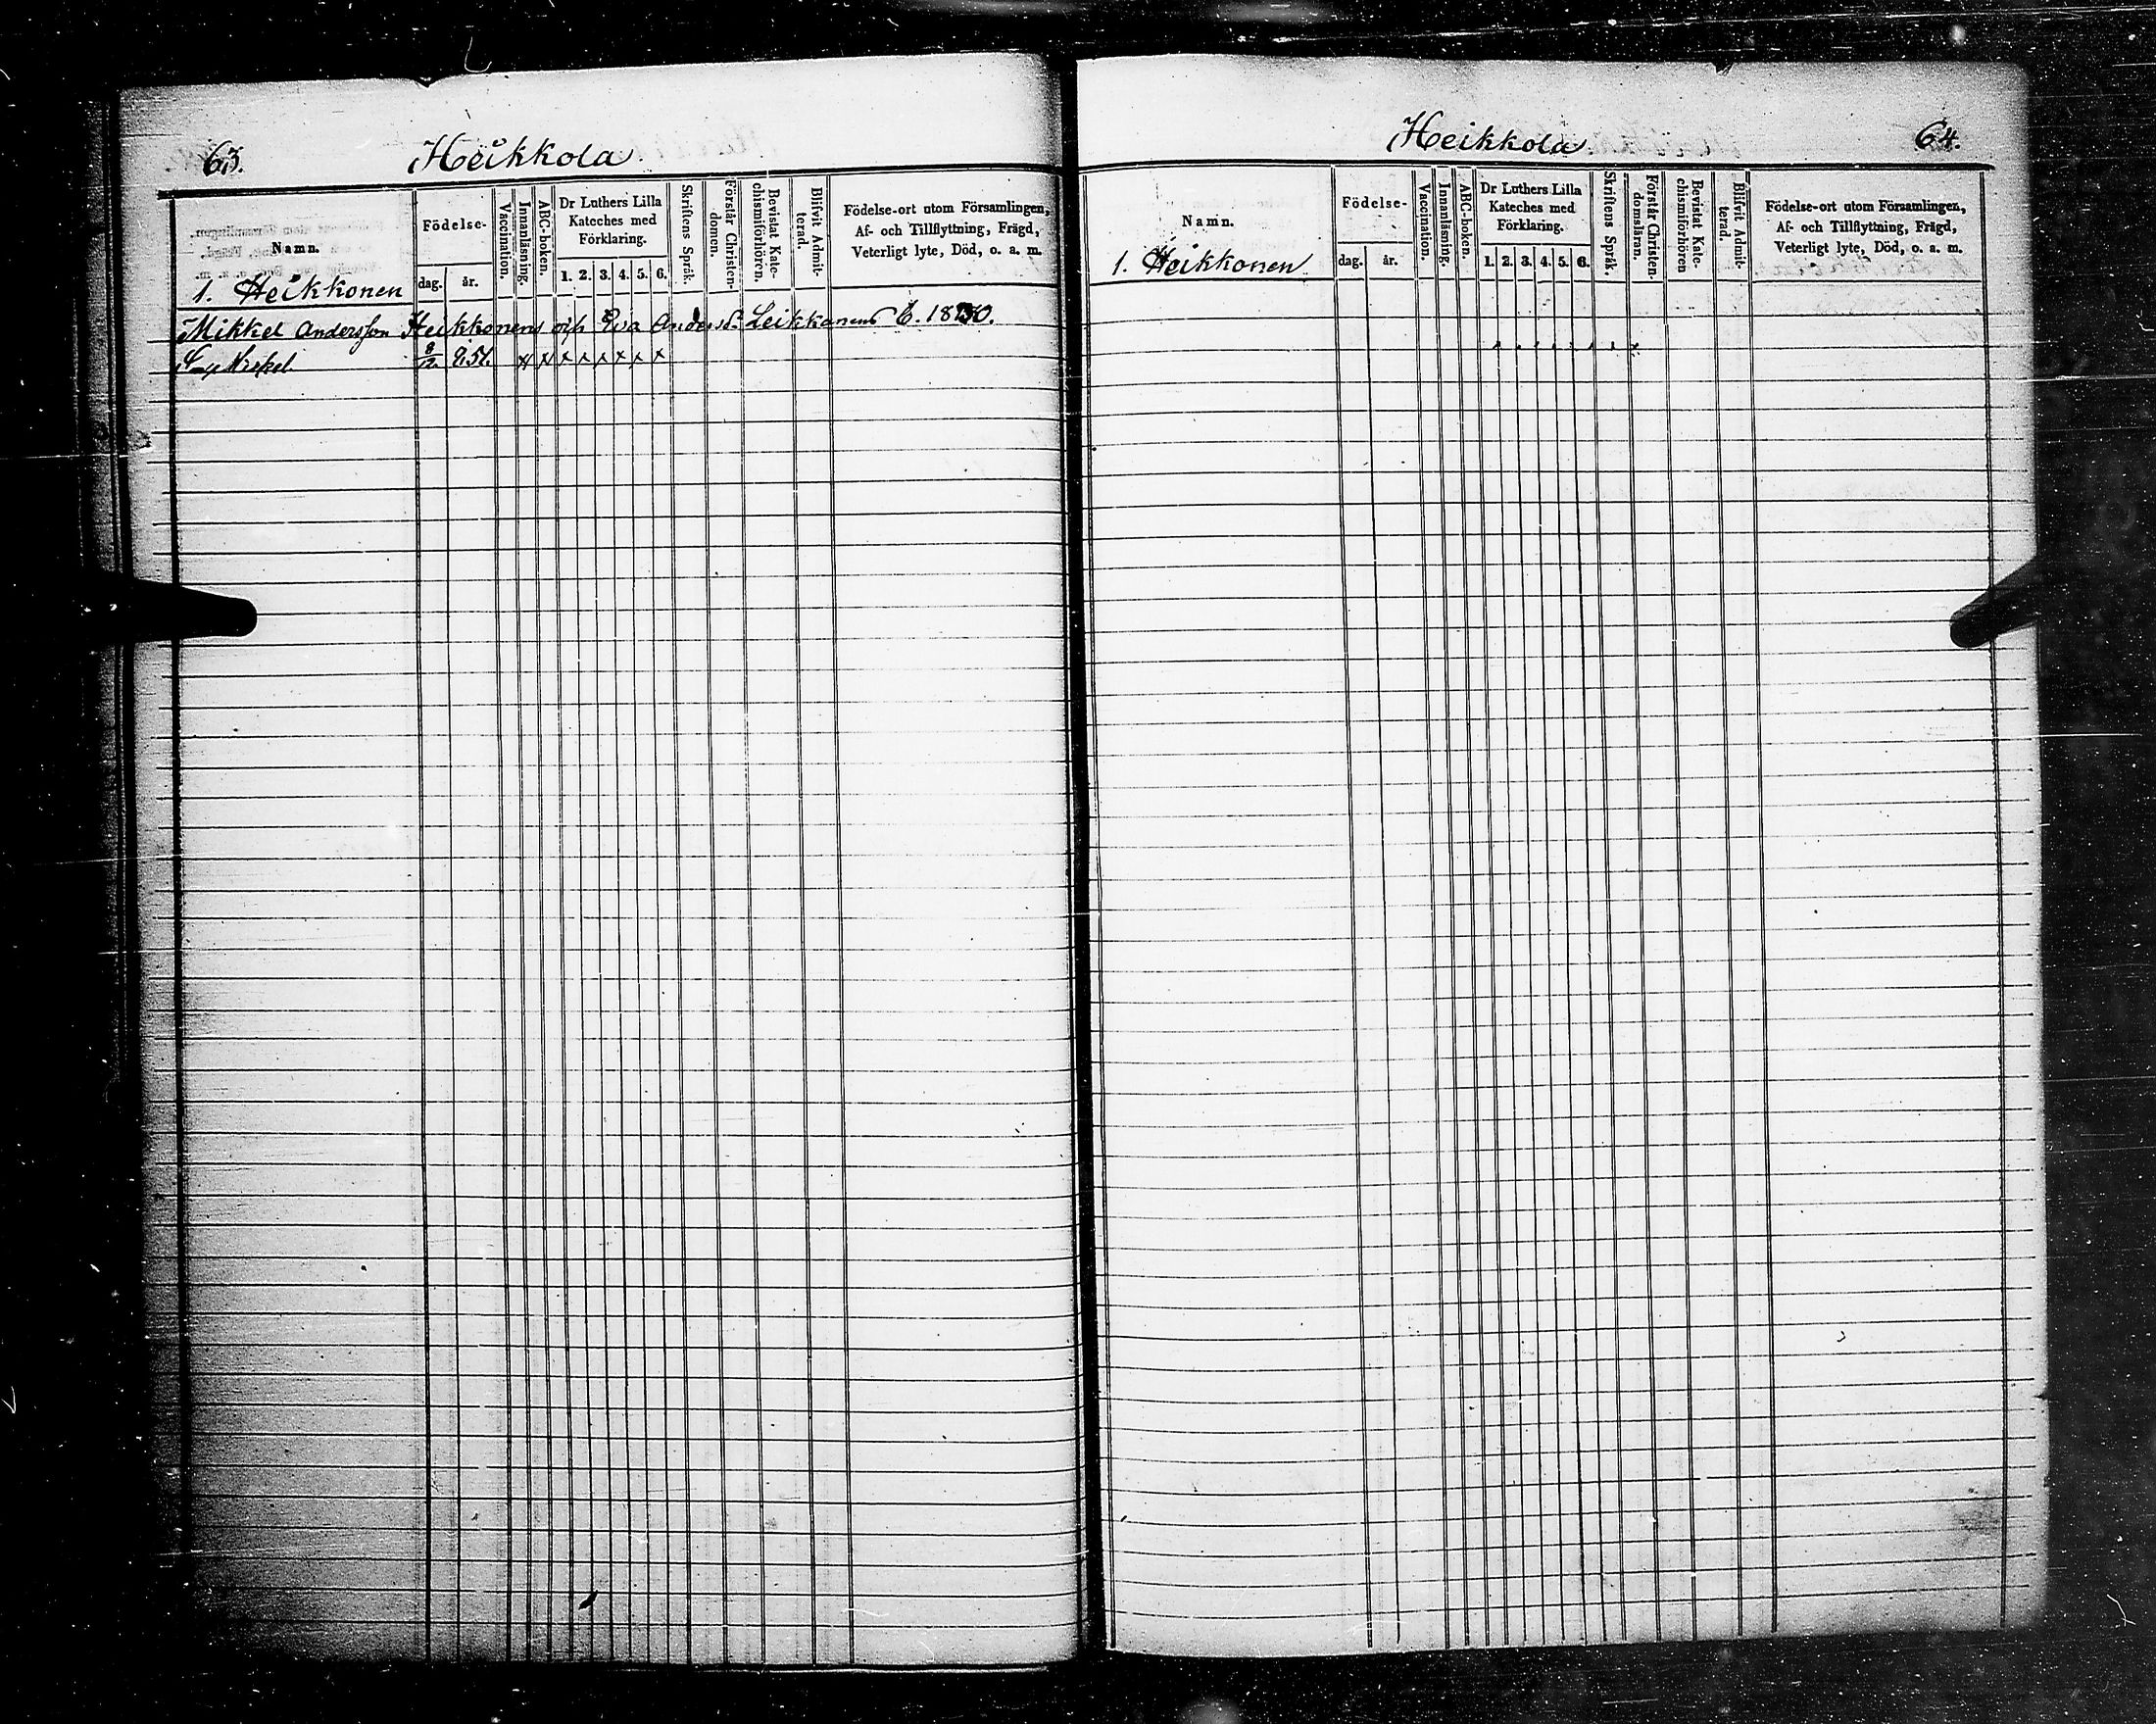 63.
Heikkola.
Namn.
Födelse-
dag.
år.
Vaccination.
Innanläsning.
ABC-boken.
Dr Luthers Lilla
Kateches med
Förklaring.
1. 2. 3. 4. 5. 6.
Skriftens Språk.
Förstår Christen-
domen.
Bevistat Kate-
chismiförhören.
Blifvit Admit-
terad.
Födelse-ort utom Församlingen,
Af- och Tillflyttning, Frägd,
Veterligt lyte, Död, o. a. m.
1. Heikkonen
Mikkel Andersson Heikkonens och Eva Andersd. Leikkanens b. 1830.
S. Mickel 8/12 851. x x x x x x x x
Heikkola.
64.
Namn.
1. Heikkonen
Födelse-
dag.
år.
Vaccination.
Innanläsning.
ABC-boken.
Dr Luthers Lilla
Kateches med
Förklaring.
1. 2. 3. 4. 5. 6.
Skriftens Språk.
Förstår Christen-
domsläran.
Bevistat Kate-
chismiförhören
Blifvit Admit-
terad.
Födelse-ort utom Församlingen,
Af- och Tillflyttning, Frägd,
Veterligt lyte, Död, o. a. m.